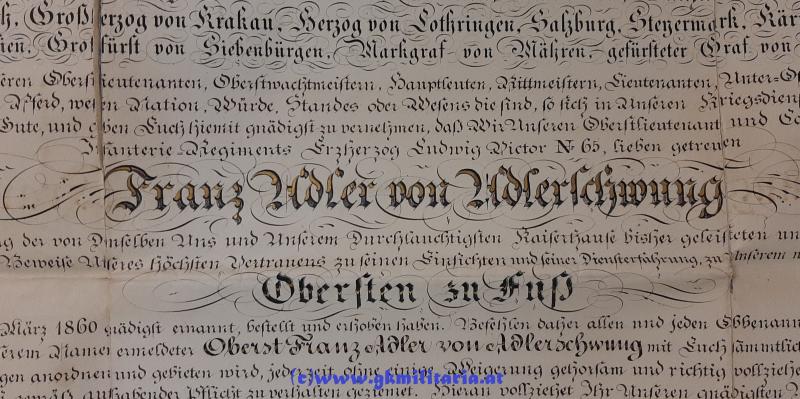 Großherzog von Krakau, Herzog von Lothringen, Salzburg, Steyermark, Kär
ien, Großfürst von Siebenbürgen, Markgraf von Mähren, gefürsteter Graf von
eren Oberstlieutenanten, Oberstwachtmeistern, Hauptleuten, Rittmeistern, Lieutenanten, Unter-O
Pferd, wessen Nation, Würde, Standes oder Wesens die sind, so stets in Unseren Kriegsdien
Gute, und geben Euch hiemit gnädigst zu vernehmen, daß Wir Unseren Oberstlieutenant und Co
Infanterie-Regiments Erzherzog Ludwig Victor No 65, lieben getreuen
Franz Adler von Adlerschwung
g der von Demselben Uns und Unserem Durchlauchtigsten Kaiserhause bisher geleisteten un
Beweise Unseres Höchsten Vertrauens zu seinen Einsichten und seiner Diensterfahrung, zu Unserem
Obersten zu Fuß
März 1860 gnädigst ernannt, bestellt und erhoben haben. Befehlen daher allen und jeden Obbenann
serem Namen ermeldeter Oberst Franz Adler von Adlerschwung mit Euch sämmtlich
gen anordnen und gebieten wird, jederzeit ohne einige Weigerung gehorsam und richtig vollziehe
aufhabender Pflicht zu verhalten geziemet. Hieran vollziehet Ihr Unseren gnädigsten
(c)www.gkmilitaria.at